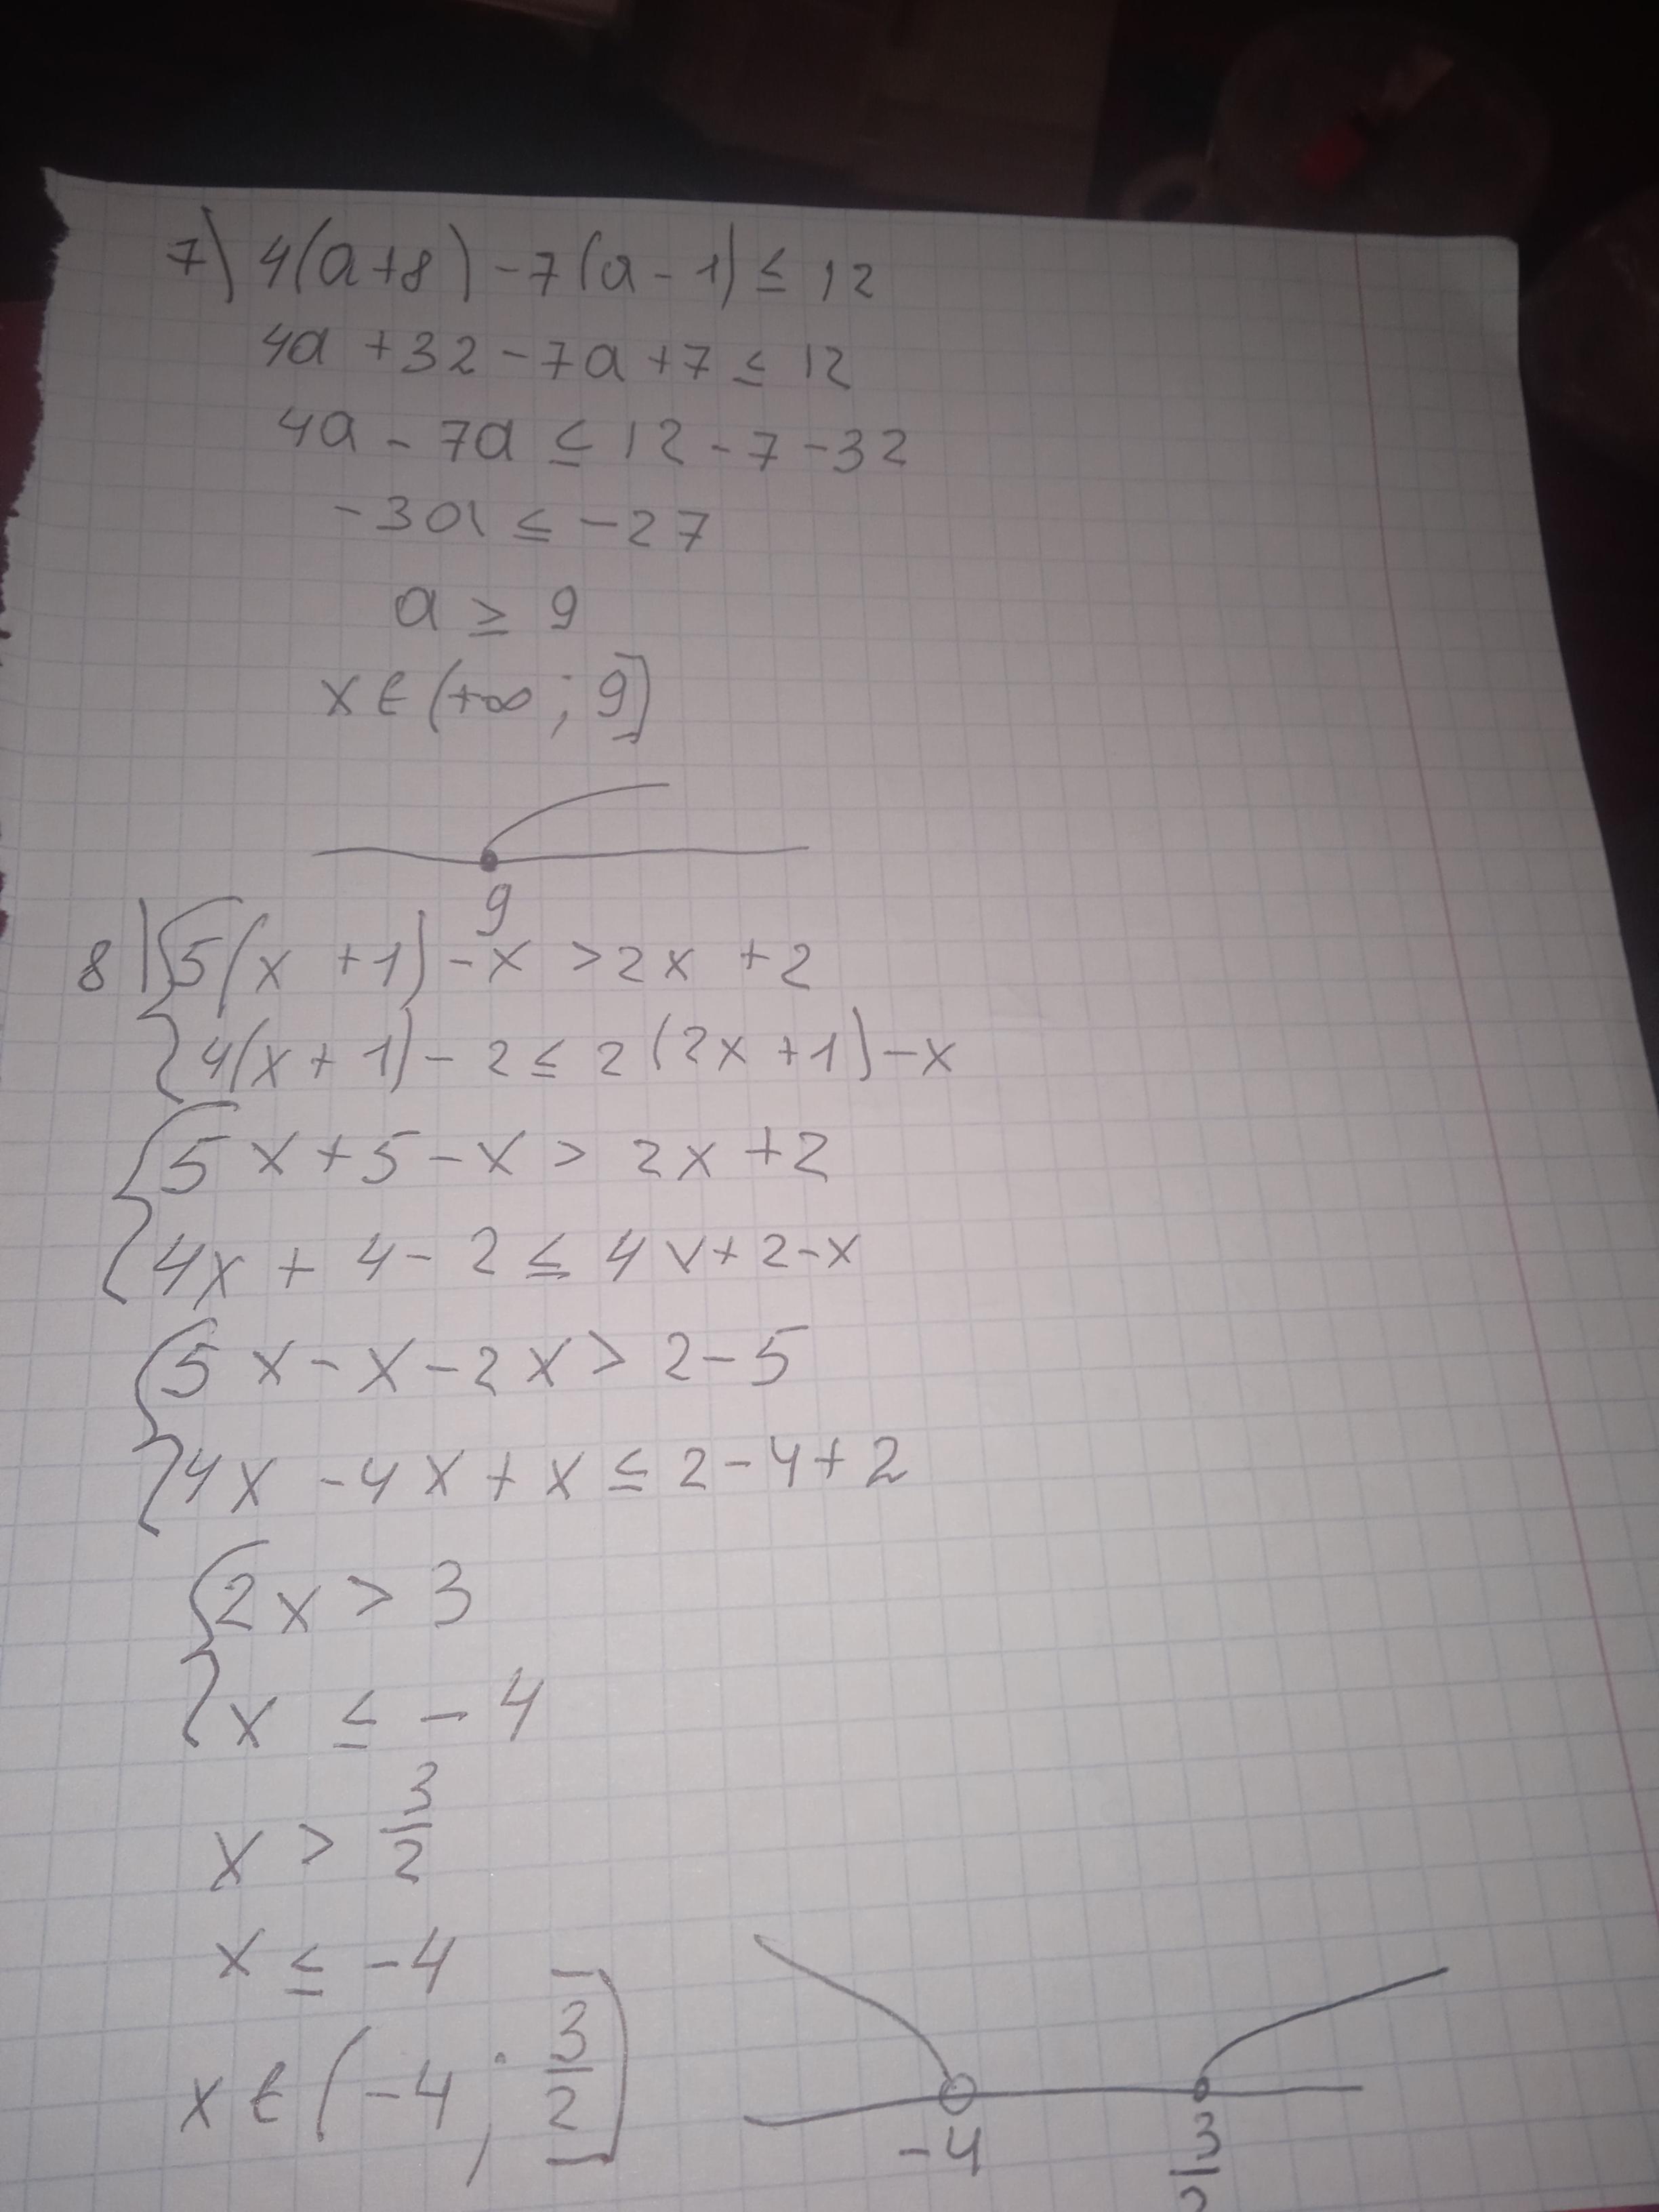 7) 4(a+8)-7(a-1)≤12
4a+32-7a+7≤12
4a-7a≤12-7-32
-3a≤-27
a≥9
x∈(+∞;9]
9
8) {5(x+1)-x>2x+2
{4(x+1)-2≤2(2x+1)-x
{5x+5-x>2x+2
{4x+4-2≤4x+2-x
{5x-x-2x>2-5
{4x-4x+x≤2-4+2
{2x>3
{x≤-4
x>3/2
x≤-4
x∈(-4;3/2]
-4 3/2